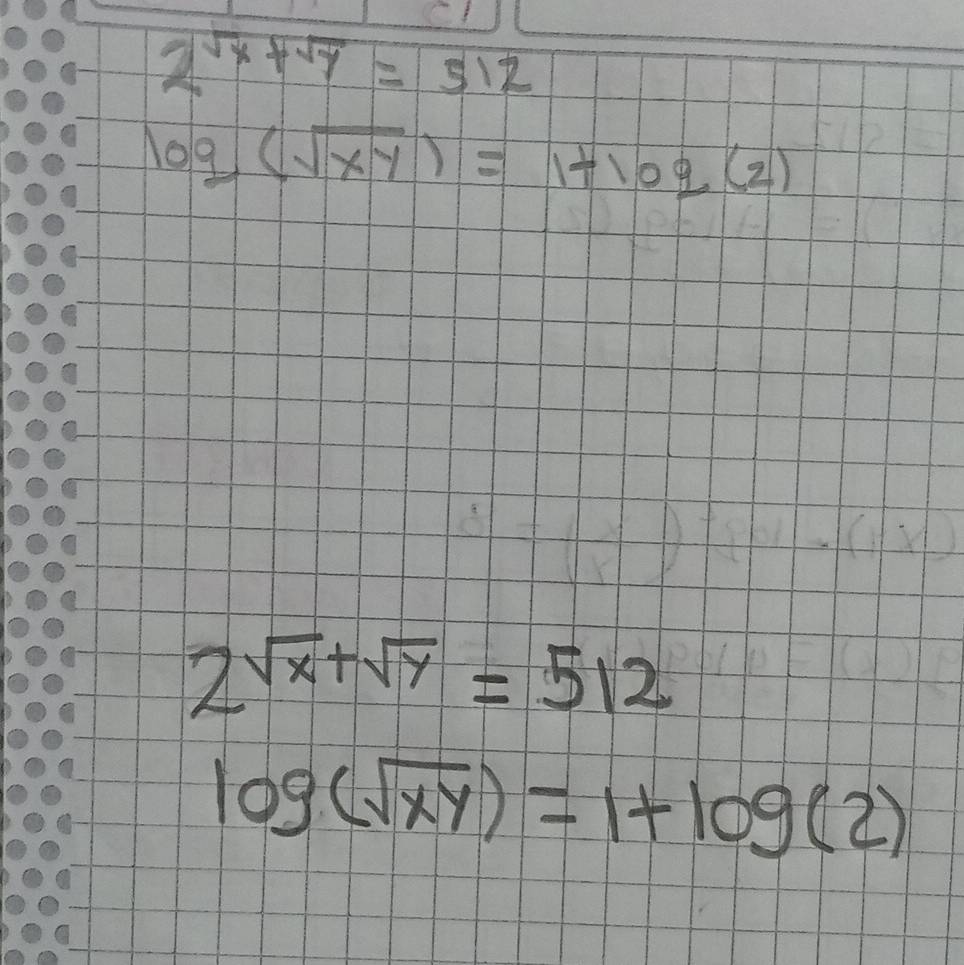 2^{√x + √y} = 512
log (√xy) = 1 + log (2)
2^{√x + √y} = 512
log (√xy) = 1 + log (2)